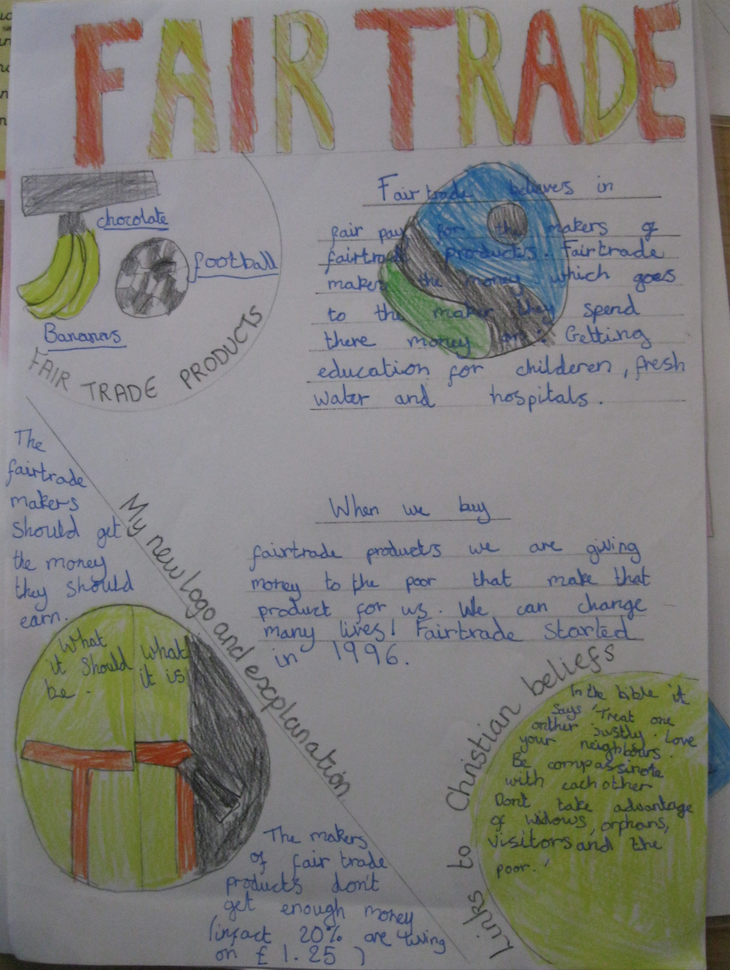 FAIR TRADE
chocolate
football
Bananas
FAIR TRADE PRODUCTS
Fairtrade believes in
fair pay for the makers of
fairtrade products. Fairtrade
makes the money which goes
to the maker they spend
there money on: Getting
education for childeren, fresh
water and hospitals.
The
fairtrade
makers
should get
the money
they should
earn.
My new logo and explanation
When we buy
fairtrade products we are giving
money to the poor that make that
product for us. We can change
many lives! Fairtrade started
in 1996.
What
it should
be.
what
it is
The makers
of fair trade
products don't
get enough money
(infact 20% are living
on £1.25)
Links to Christian beliefs
In the bible it
says 'Treat one
onther justly. Love
your neighbours.
Be compassinote
with eachother
Dont take advantage
of widows, orphans,
visitors and the
poor.'